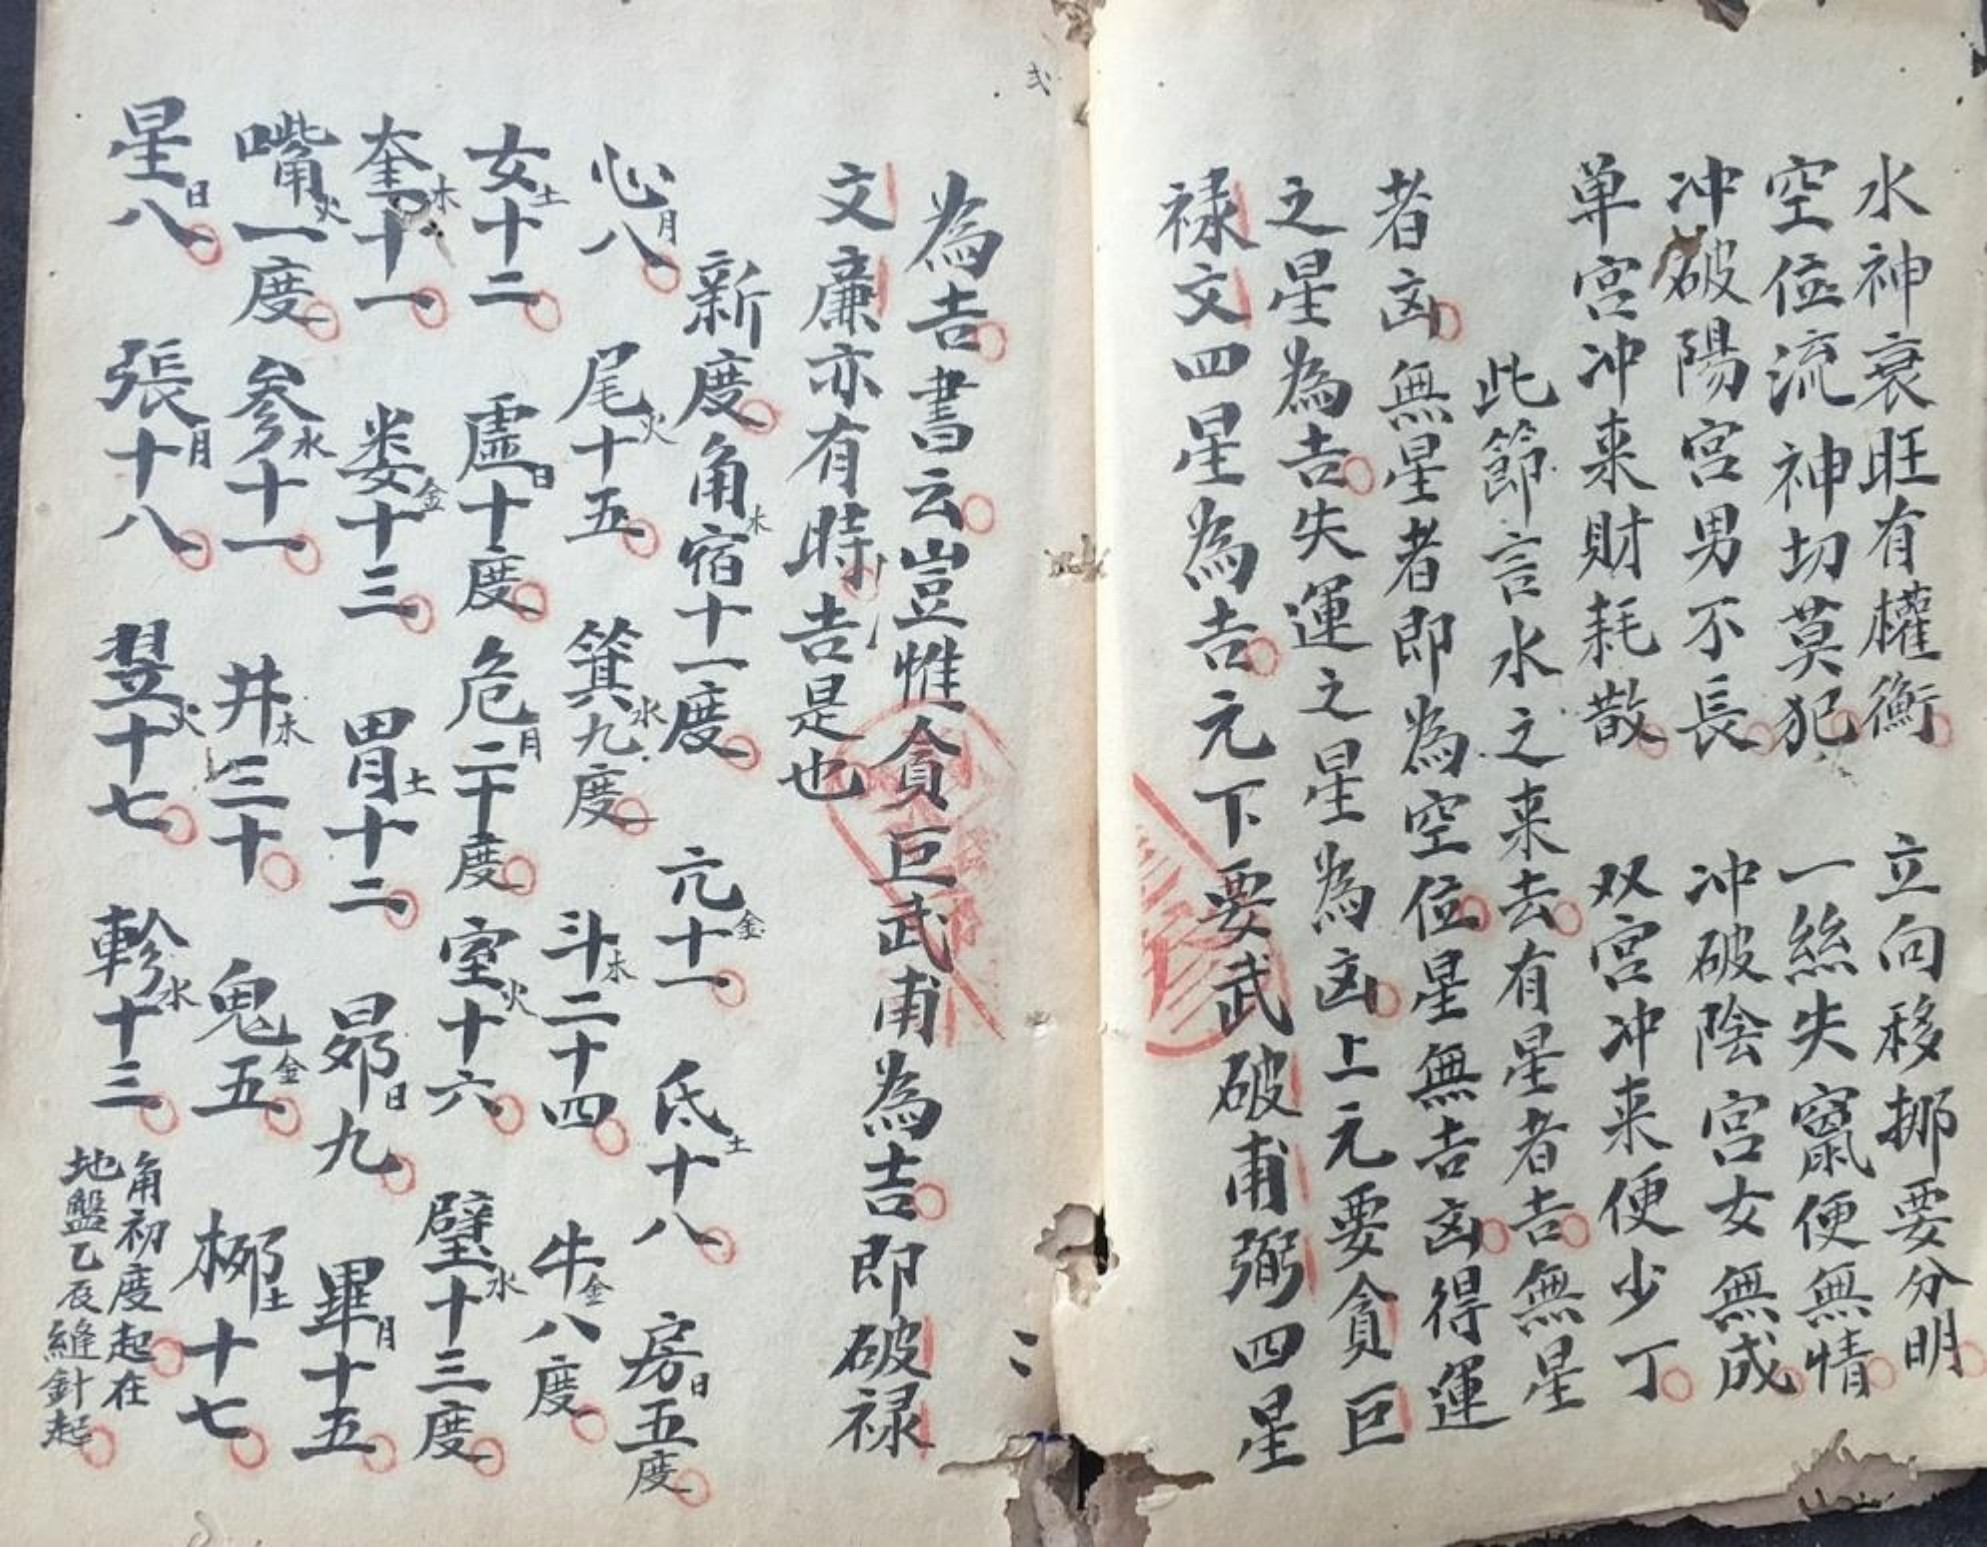 水神衰旺有權衡　立向移挪要分明
空位流神切莫犯　一絲失竄便無情
冲破陽宮男不長　冲破陰宮女無成
单宮冲来財耗散　双宮冲来便少丁
此節言水之来去有星者吉無星
者凶無星者即為空位星無吉凶得運
之星為吉失運之星為凶上元要貪巨
禄文四星為吉元下要武破甫弼四星
為吉書云豈惟貪巨武甫為吉即破禄
文廉亦有時吉是也
新度角木宿十一度　亢金十一　氐土十八　房日五度
心月八　尾火十五　箕水九度　斗木二十四　牛金八度
女土十二　虛日十度　危月二十度　室火十六　壁水十三度
奎木十一　娄金十三　胃土十二　昴日九　畢月十五
嘴火一度　参水十一　井木三十　鬼金五　柳土十七
星日八　張月十八　翌火十七　軫水十三　角初度起在
地盤乙辰縫針起